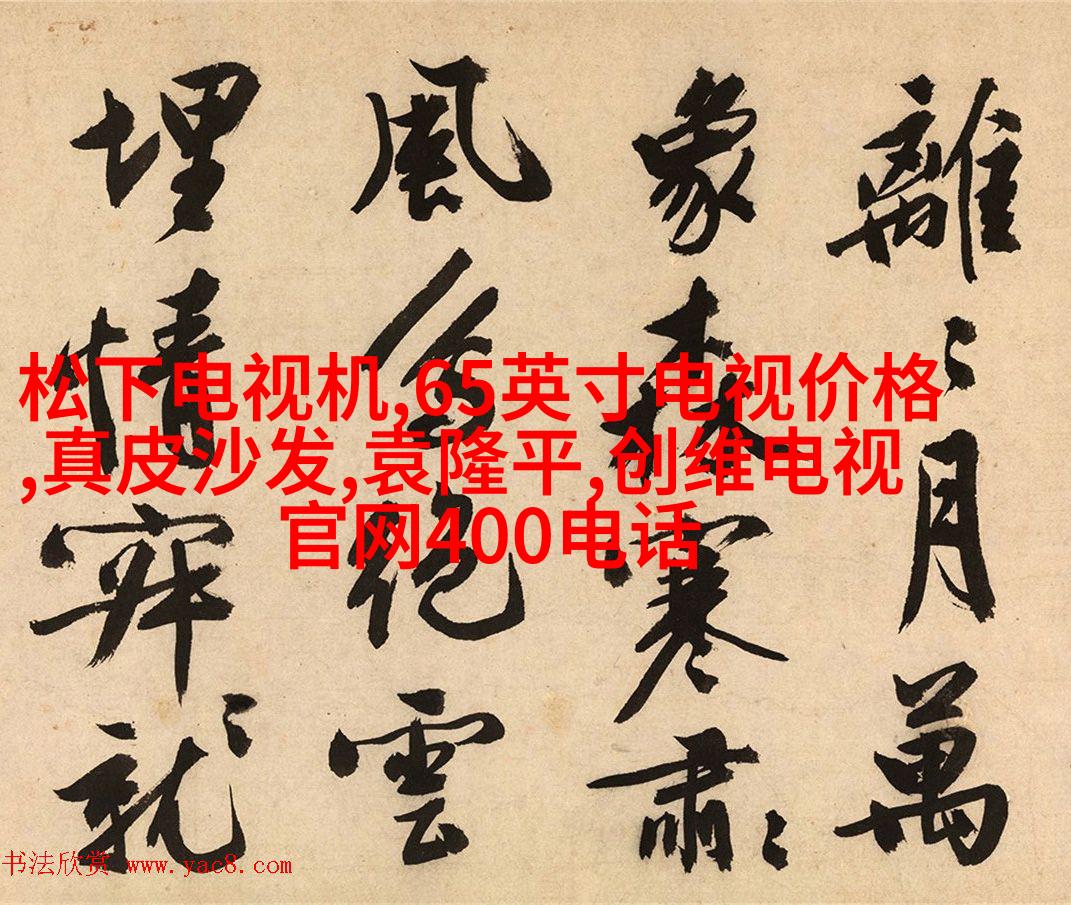 離〻月萬
象森寒肅〻
風絕雲
埋情就〻
松下电视机,65英寸电视价格
,真皮沙发,袁隆平,创维电视
官网400电话
书法欣赏 www.yac8.com